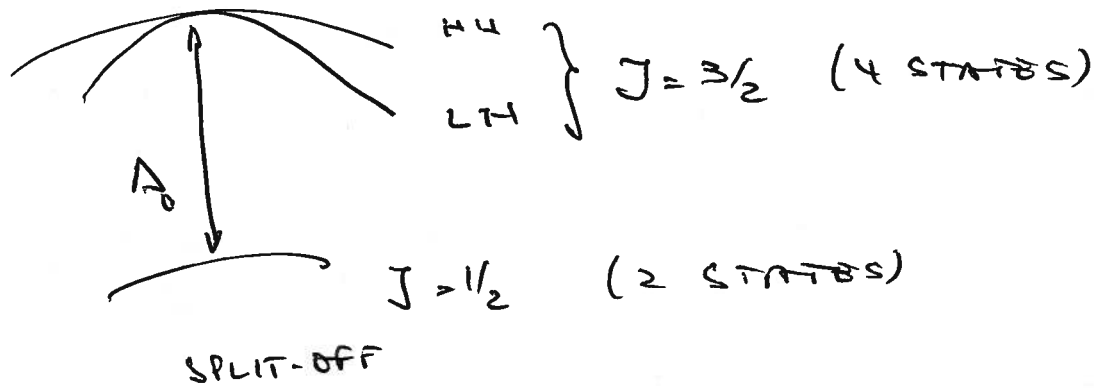 HH
LH
J = 3/2 (4 STATES)
Δ₀
J = 1/2 (2 STATES)
SPLIT-OFF